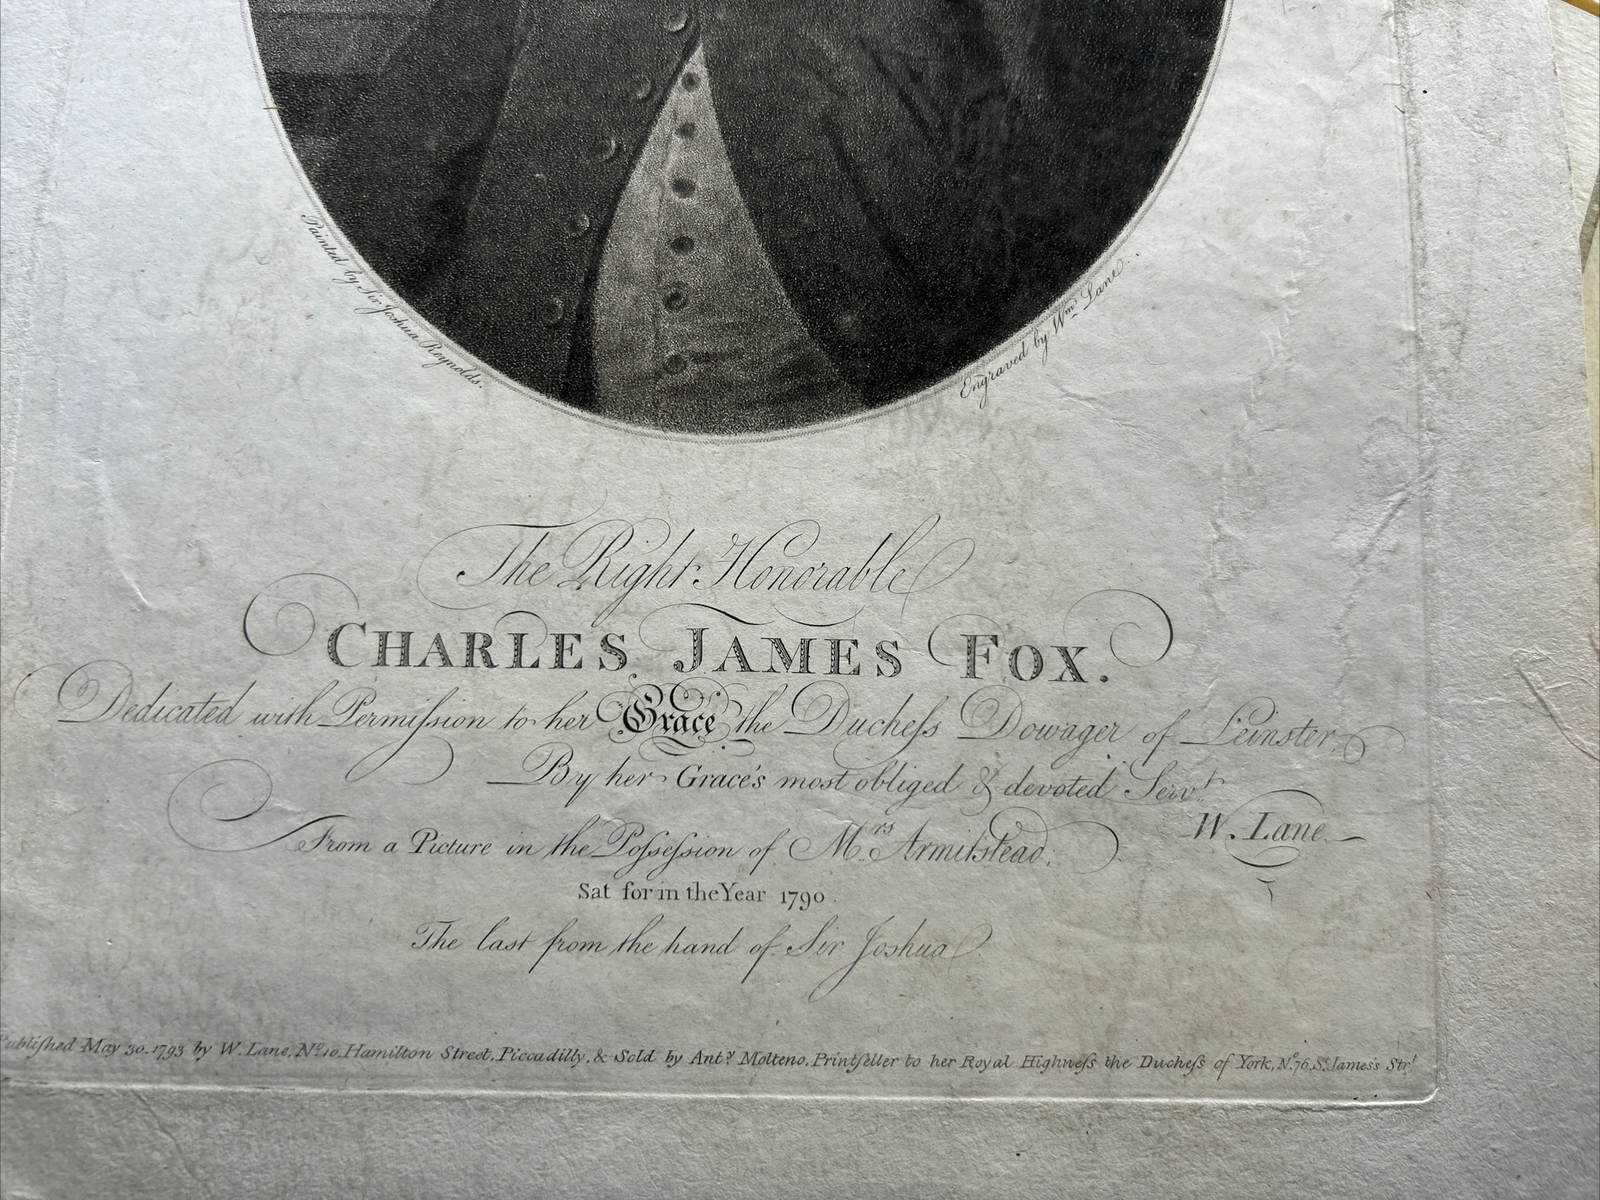 Painted by Sir Joshua Reynolds.
Engraved by Wm. Lane.
The Right Honorable
CHARLES JAMES FOX.
Dedicated with Permiſsion to her Grace the Ducheſs Dowager of Leinster,
By her Grace's most obliged & devoted Servt.
W. Lane.
From a Picture in the Poſseſsion of Mrs. Armitstead,
Sat for in the Year 1790.
The last from the hand of Sir Joshua.
Publiſhed May 30. 1793 by W. Lane, No. 10. Hamilton Street, Piccadilly, & Sold by Anty. Molteno, Printſeller to her Royal Highneſs the Ducheſs of York, No. 76, St. James's Strt.